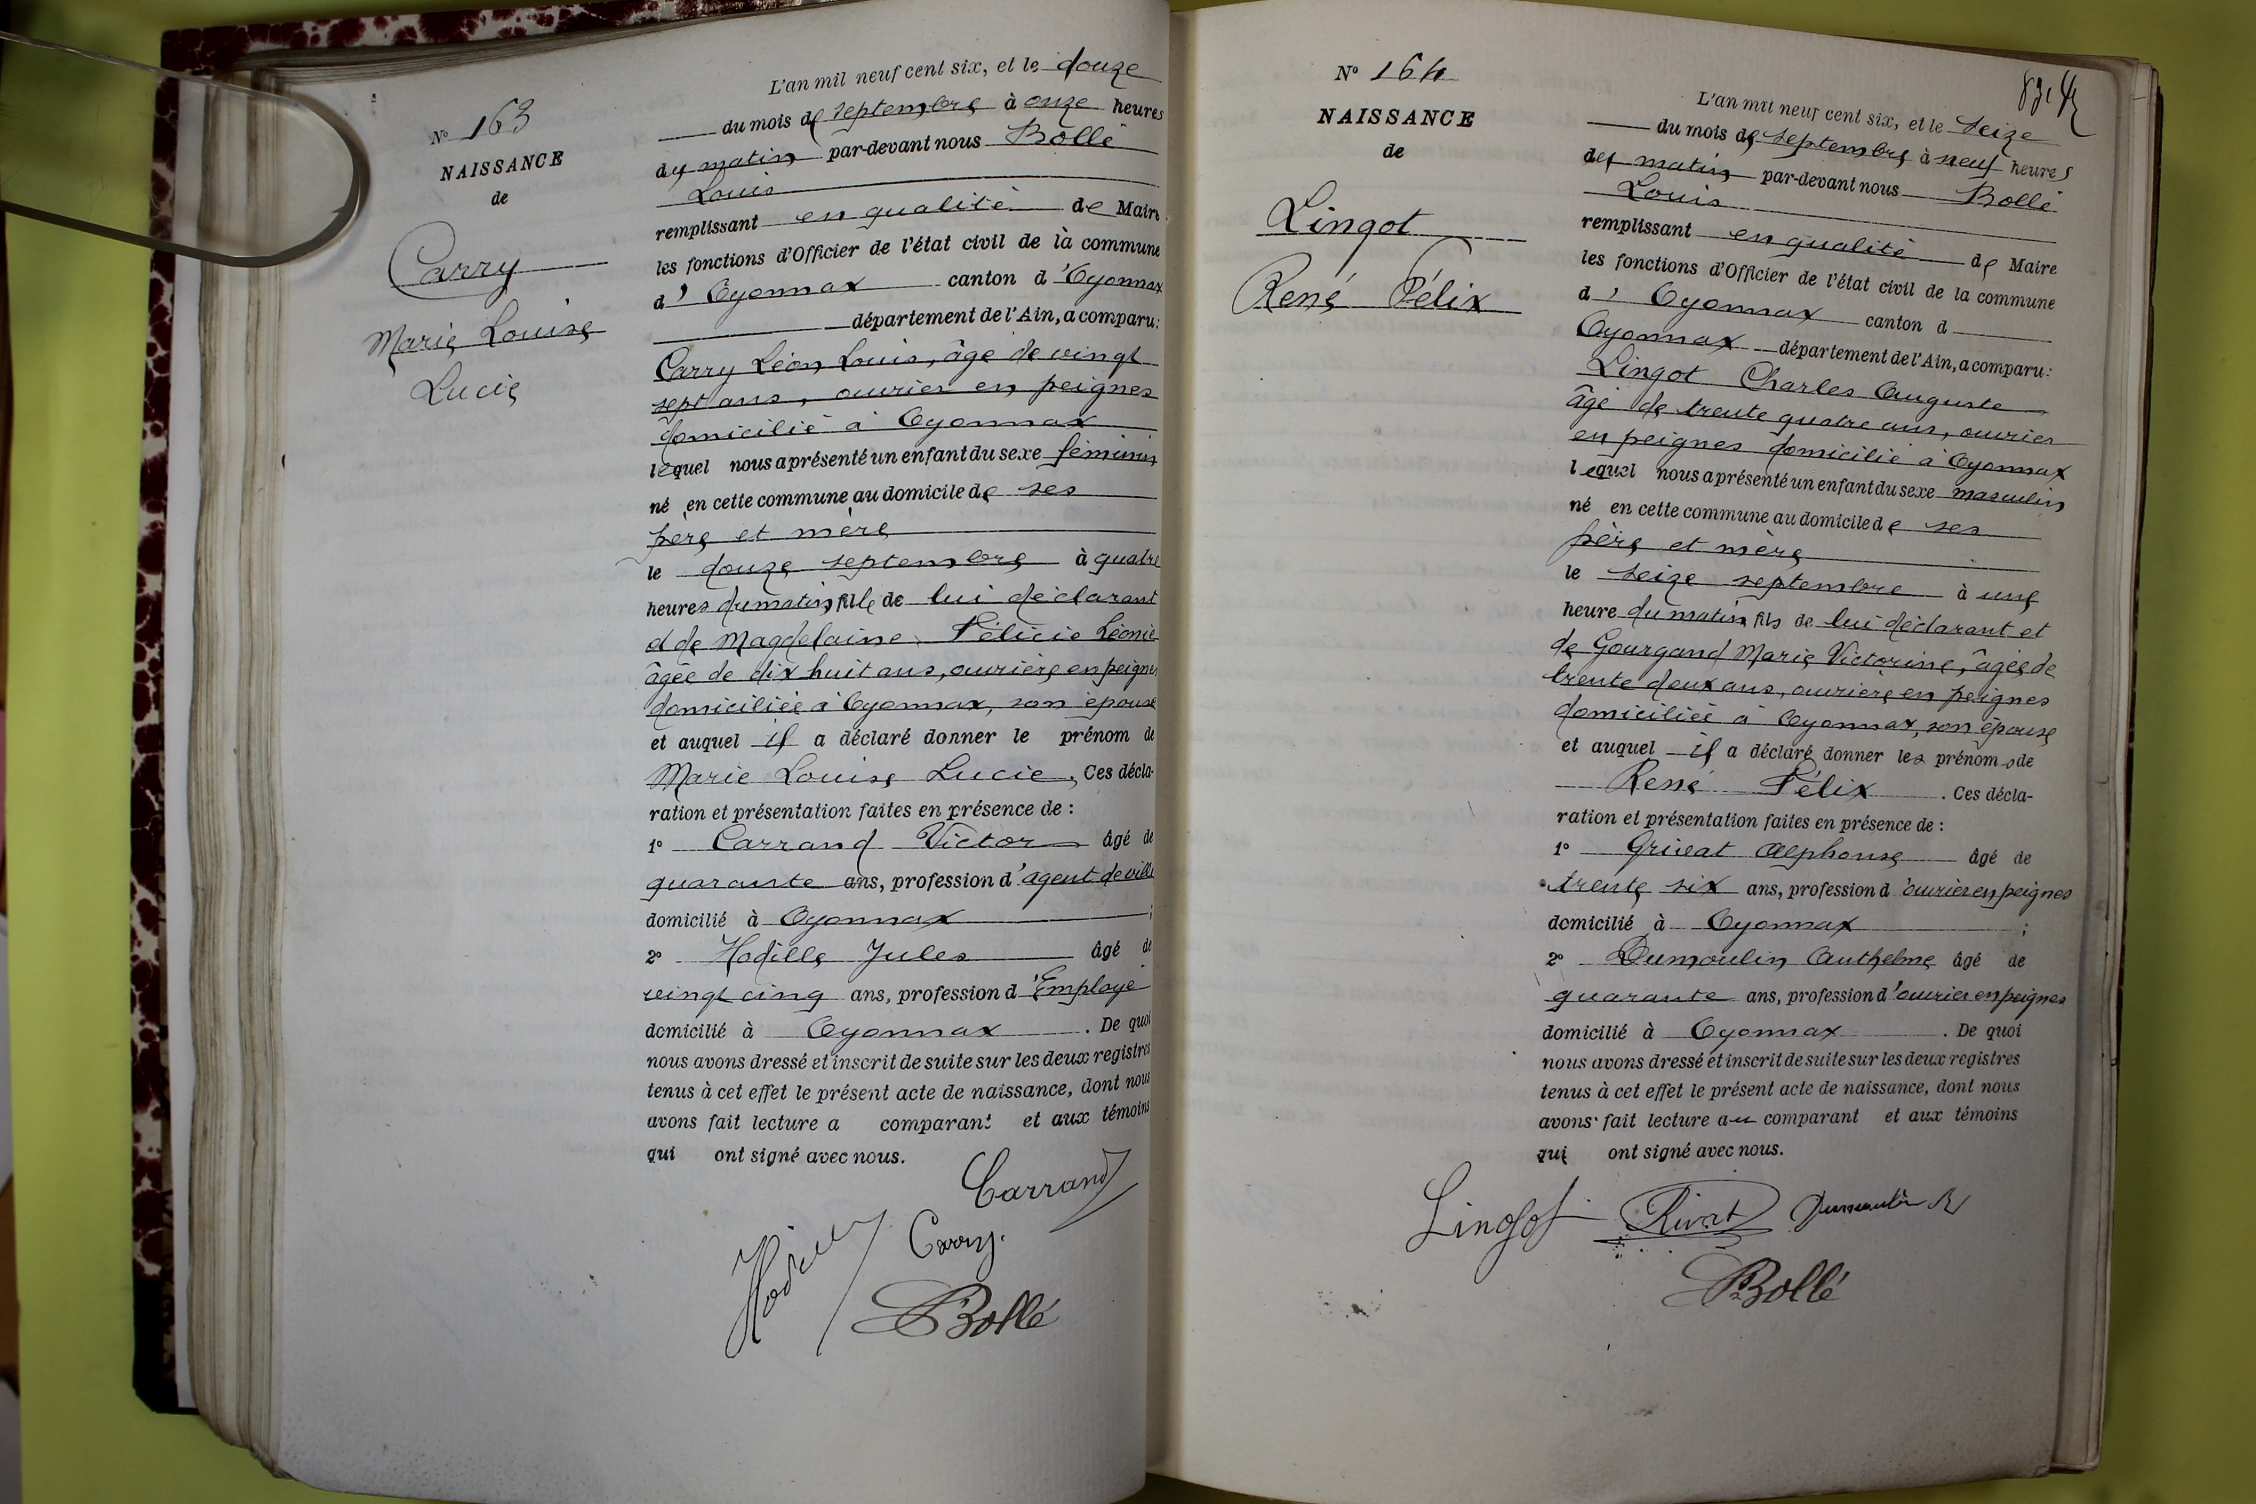 N° 163
NAISSANCE
de
Carry
Marie Louise
Lucie
L'an mil neuf cent six, et le douze
du mois de septembre à onze heures
du matin par-devant nous Bollé
Louis
remplissant en qualité de Maire
les fonctions d'Officier de l'état civil de la commune
d' Oyonnax canton d'Oyonnax
département de l'Ain, a comparu:
Carry Léon Louis, âgé de vingt
sept ans, ouvrier en peignes
domicilié à Oyonnax
lequel nous a présenté un enfant du sexe féminin
né en cette commune au domicile de ses
père et mère
le douze septembre à quatre
heures du matin, fille de lui déclarant
et de Magdelaine Félicie Léonie
âgée de dix huit ans, ouvrière en peignes
domiciliée à Oyonnax, son épouse
et auquel il a déclaré donner le prénom de
Marie Louise Lucie. Ces décla-
ration et présentation faites en présence de :
1° Carrand Victor âgé de
quarante ans, profession d'agent de ville
domicilié à Oyonnax ;
2° Hodille Jules âgé de
vingt cinq ans, profession d'Employé
domicilié à Oyonnax . De quoi
nous avons dressé et inscrit de suite sur les deux registres
tenus à cet effet le présent acte de naissance, dont nous
avons fait lecture a comparant et aux témoins
qui ont signé avec nous.
Carrand
Hodille Carry.
Bollé
N° 164
NAISSANCE
de
Lingot
René Félix
L'an mil neuf cent six, et le seize
du mois de septembre à neuf heures
du matin par-devant nous Bollé
Louis
remplissant en qualité de Maire
les fonctions d'Officier de l'état civil de la commune
d' Oyonnax canton d
Oyonnax département de l'Ain, a comparu:
Lingot Charles Auguste
âgé de trente quatre ans, ouvrier
en peignes domicilié à Oyonnax
lequel nous a présenté un enfant du sexe masculin
né en cette commune au domicile de ses
père et mère
le seize septembre à une
heure du matin fils de lui déclarant et
de Gourgand Marie Victorine, âgée de
trente deux ans, ouvrière en peignes
domiciliée à Oyonnax, son épouse
et auquel il a déclaré donner les prénoms de
René Félix . Ces décla-
ration et présentation faites en présence de :
1° Grivat Alphonse âgé de
trente six ans, profession d'ouvrier en peignes
domicilié à Oyonnax ;
2° Dumoulin Anthelme âgé de
quarante ans, profession d'ouvrier en peignes
domicilié à Oyonnax . De quoi
nous avons dressé et inscrit de suite sur les deux registres
tenus à cet effet le présent acte de naissance, dont nous
avons fait lecture au comparant et aux témoins
qui ont signé avec nous.
Lingot Rivat Dumoulin
Bollé